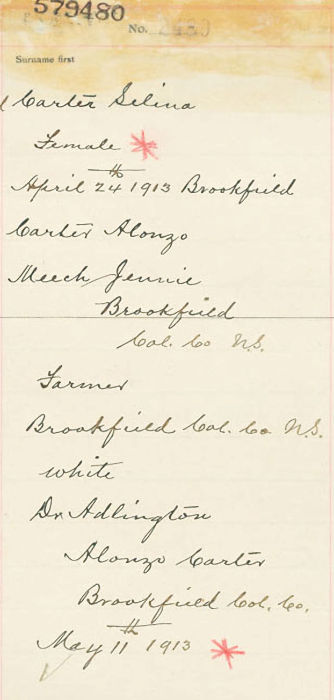 579480
No.
Surname first
Carter Selina
Female
April 24th 1913 Brookfield
Carter Alonzo
Meech Jennie
Brookfield
Col. Co N.S.
Farmer
Brookfield Col. Co N.S.
white
Dr Adlington
Alonzo Carter
Brookfield Col. Co.
May 11th 1913